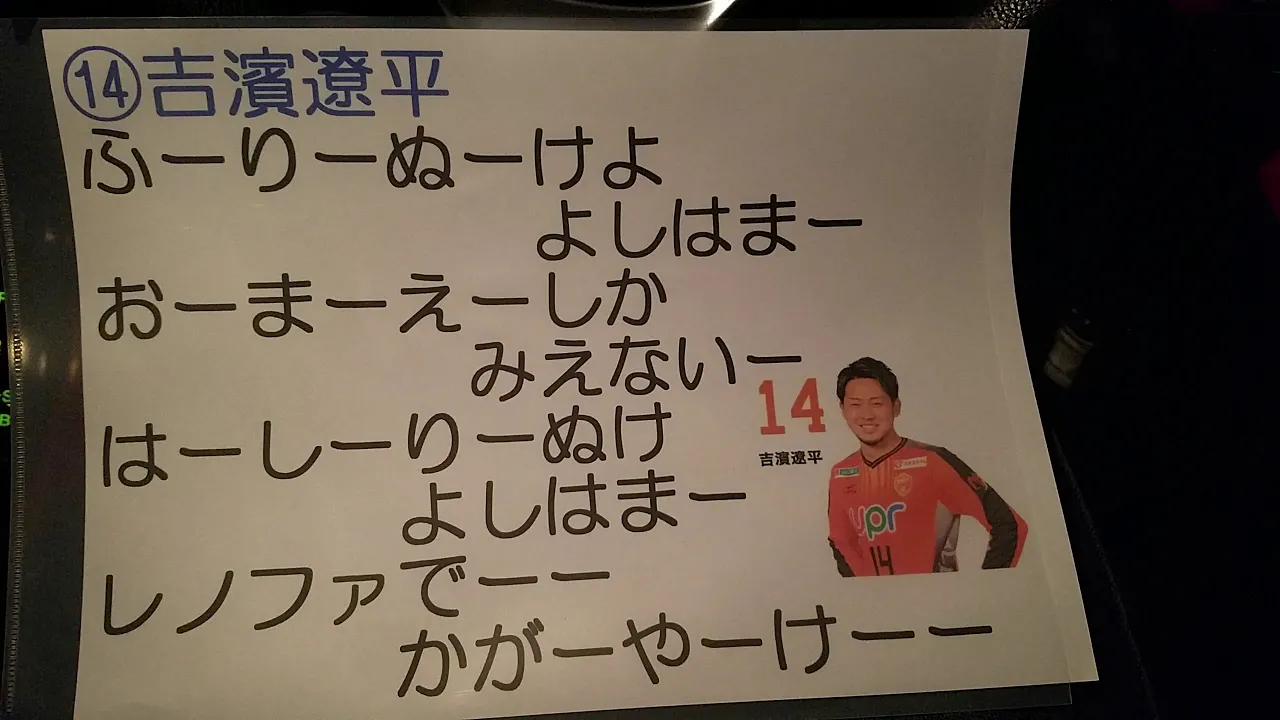 ⑭吉濱遼平
ふーりーぬーけよ
よしはまー
おーまーえーしか
みえないー
はーしーりーぬけ
よしはまー
レノファでーー
かがーやーけーー
14
吉濱遼平
upr
14